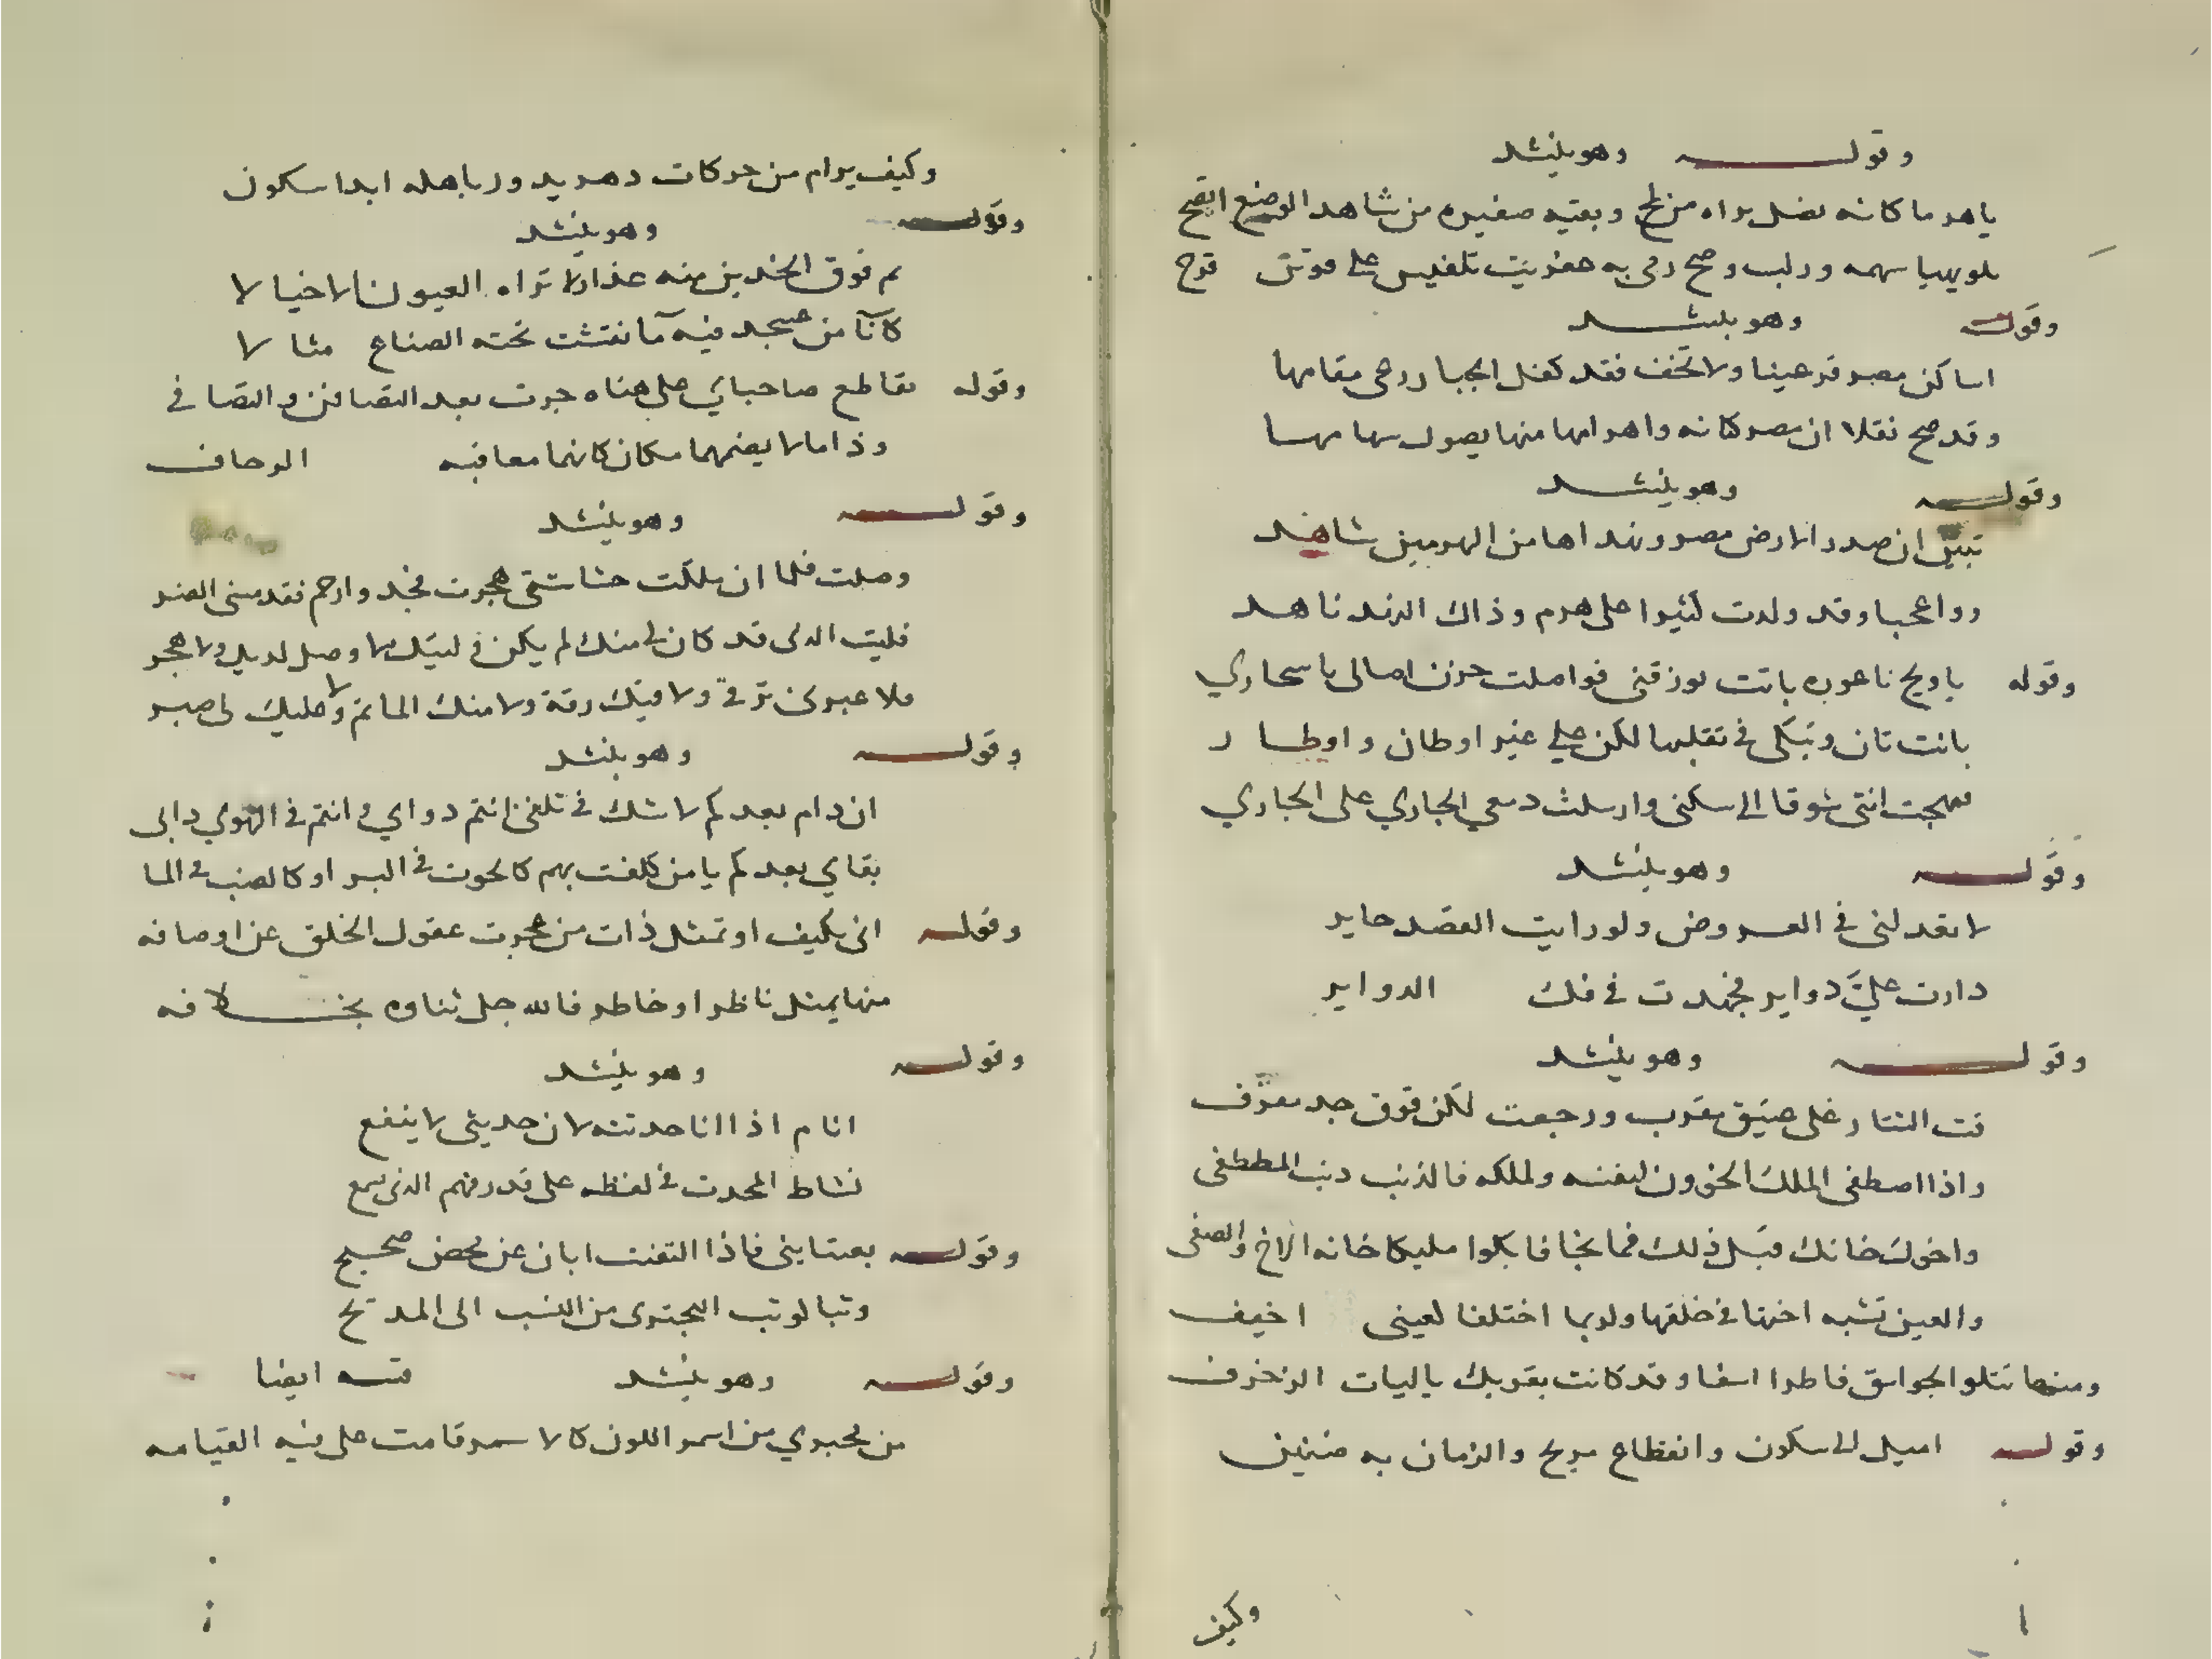 وقولـــه وهو ينشد
ياهر ما كانه لضل براه من لح وبعته صغيره من شاهد الوضع اتضح
سهمه ودلب وصح رمى به على قوس قزح
وقوله وهو ينشد
اساكن مصر قر عينا ولا تخف فقد كفل الجبار رحمى مقامها
وقد صح نقلا ان مصر كنانه واهرامها منها يصول سهامها
وقوله وهو ينشد
تبين ان صدر الارض مصر ونهداها من الهرمين شاهد
وواعجبا وقد ولدت كثيرا على هرم وذاك النهد ناهد
وقوله ياويح ناعوره باتت تورقنى فواصلت حزن اصالى باسحاري
باتت تان وتبكى في تقلبها لكن على غير اوطان واوطار
فهيجت انتى شوقا الى سكنى وارسلت دمعي الجاري على الجاري
وقوله وهو ينشد
لا تعدلنى في العروض ولو رايت القصد حاير
دارت علي دواير فجهدت في فك الدواير
وقوله وهو ينشد
فت التتار على ضيق مقرب ورجعت لكن فوق جد معرف
واذا اصطفى الملك الخوون لنفسه ولملكه فالذنب دنب المصطفى
واخوك خانك قبل ذلك فما نجا فابكوا مليكا خانه الاخ والصفى
والعين تشبه اختها في خلقها ولربما اختلفا لعينى اخيف
ومنها تتلو الجواسق فاطرا اسفا وقد كانت بقربك ياليات الزخرف
وقوله اميل الى سكون وانقطاع مريح والزمان به ضنين
وكيف
وكيف يرام من حركات دهر يدور باهله ابدا سكون
وقوله وهو ينشد
نم فوق الخدين منه عذار لا تراه العيون الا خيالا
كانا من عسجد فيه ما نقشت تحته الصناع مثالا
وقوله تقاطع صاحباي على هناه جرت بعد التصافن والتصافي
وذا ما لا يضمهما مكان كانهما معاقبه الزحاف
وقوله وهو ينشد
وصلت فلما ان ملكت حشاشتى هجرت فجد وارحم فقد مسنى الضر
فليت الذى قد كان لى منك لم يكن وليتك لا وصل لديك ولا هجر
فلا عبرتى ترقى ولا فيك رقة ولا منك المام ولا عليك لى صبر
وقوله وهو ينشد
ان دام بعدكم لا شك في تلفى انتم دواي وانتم في الهوي دائى
بقاي بعدكم يا من كلفت بهم كالحوت في البر او كالضب في الما
وقوله انى بكيف او تمثل ذات من عجزت عقول الخلق عن اوصافه
منها يمثل ناظر او خاطر فالله جل ثناوه بخلافه
وقوله وهو ينشد
انام اذا انا حدثته لان حديثى لا ينفع
نشاط المحدث في لفظه على قدر فهم الذى يسمع
وقوله يعتابنى فاذا التفت ابان عن محض صحيح
وثبا كوثب البحترى من النسب الى المديح
وقوله وهو ينشد فيه ايضا
من مجبري من اسمر اللون كالاسمر قامت على فيه القيامه